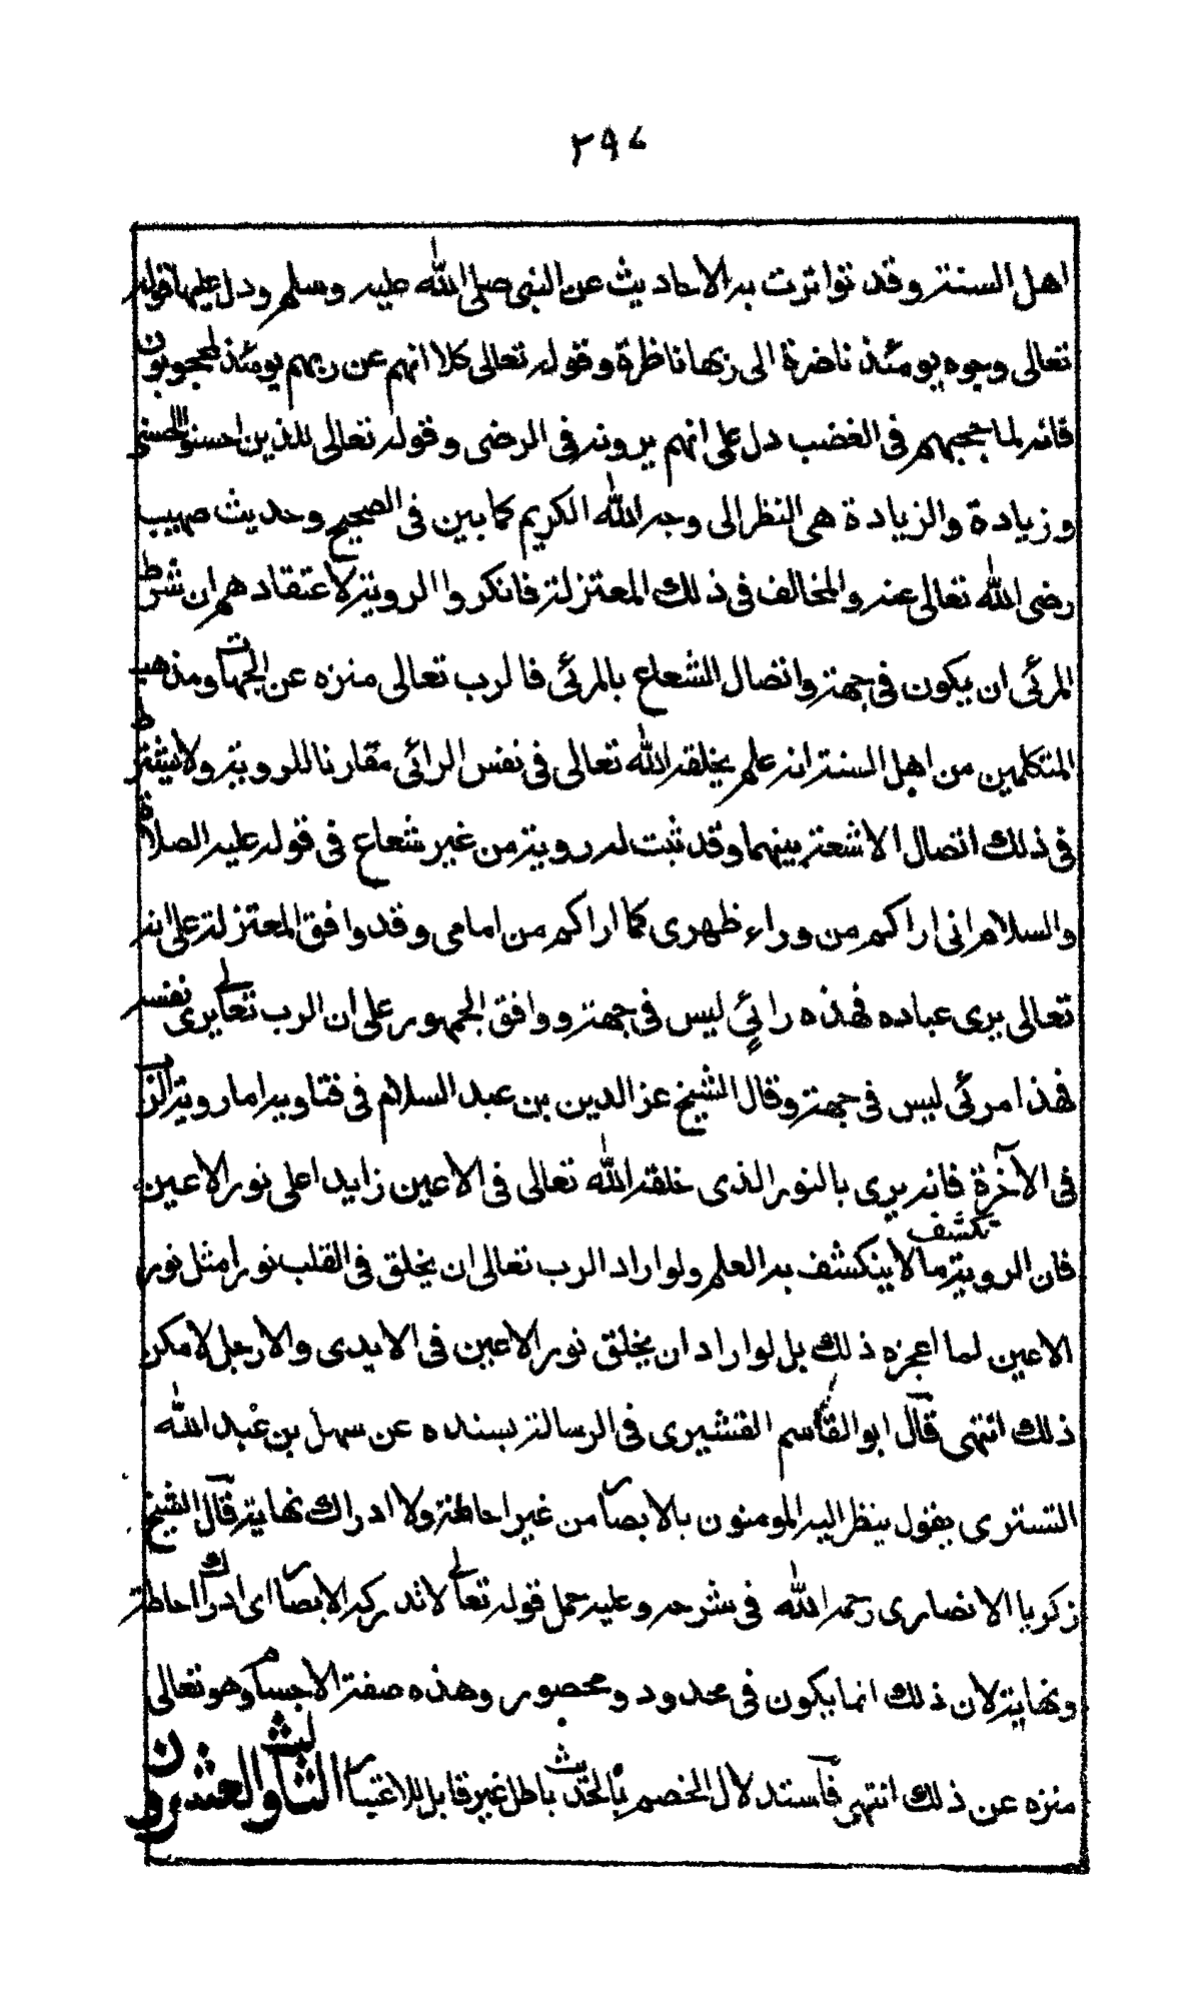 ٢٩٤
اهل السنة وقد تواترت به الاحاديث عن النبى صلى الله عليه وسلم ودل عليها قوله
تعالى وجوه يومئذ ناضرة الى ربها ناظرة وقوله تعالى كلا انهم عن ربهم يومئذ لمحجوبون
فانه لما حجبهم فى الغضب دل على انهم يرونه فى الرضى وقوله تعالى للذين احسنوا الحسنى
وزيادة والزيادة هى النظر الى وجه الله الكريم كما بين فى الصحيح وحديث صهيب
رضى الله تعالى عنه والمخالف فى ذلك المعتزلة فانكروا الروية لاعتقادهم ان شرط
المرئى ان يكون فى جهة واتصال الشعاع بالمرئى فالرب تعالى منزه عن الجهات ومذهب
المتكلمين من اهل السنة انه علم يخلقه الله تعالى فى نفس الرائى مقارنا للروية ولا يشترط
فى ذلك اتصال الاشعة بينهما وقد ثبت له روية من غير شعاع فى قوله عليه الصلاة
والسلام انى اراكم من وراء ظهرى كما اراكم من امامى وقد وافق المعتزلة على انه
تعالى يرى عباده فهذه رائى ليس فى جهة ووافق الجمهور على ان الرب تعالى يرى نفسه
فهذا مرئى ليس فى جهة وقال الشيخ عز الدين بن عبد السلام فى فتاويه اما روية الرب
فى الآخرة فانه يرى بالنور الذى خلقه الله تعالى فى الاعين زايدا على نور الاعين
تكشف
فان الروية ما لا ينكشف به العلم ولو اراد الرب تعالى ان يخلق فى القلب نورا مثل نور
الاعين لما اعجزه ذلك بل لو اراد ان يخلق نور الاعين فى الايدى والارجل لامكن
ذلك انتهى قال ابو القاسم القشيرى فى الرسالة بسنده عن سهل بن عبد الله
التسترى يقول ينظر اليه المومنون بالابصار من غير احاطة ولا ادراك نهاية قال الشيخ
زكريا الانصارى رحمه الله فى شرحه وعليه حمل قوله تعالى لا تدركه الابصار اى ادراك احاطة
ونهاية لان ذلك انما يكون فى محدود ومحصور وهذه صفة الاجسام وهو تعالى
منزه عن ذلك انتهى فاستدلال الخصم بالحديث باطل غير قابل للاعتبار الثالث والعشرون